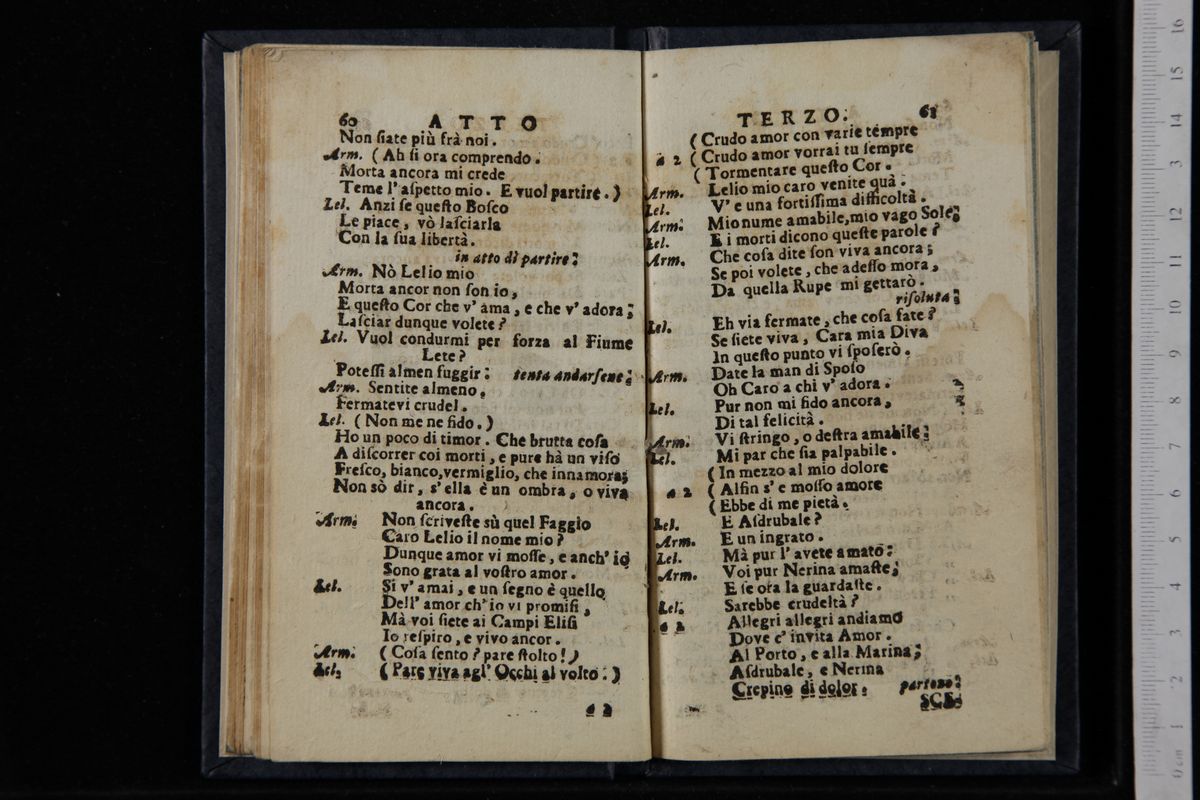 60 ATTO
Non ſiate più frà noi.
Arm. (Ah ſi ora comprendo.
Morta ancora mi crede
Teme l'aſpetto mio. E vuol partire.)
Lel. Anzi ſe queſto Boſco
Le piace, vò laſciarla
Con la ſua libertà.
in atto di partire;
Arm. Nò Lelio mio
Morta ancor non ſon io,
E queſto Cor che v'ama, e che v'adora;
Laſciar dunque volete?
Lel. Vuol condurmi per forza al Fiume
Lete?
Poteſſi almen fuggir: tenta andarſene;
Arm. Sentite almeno,
Fermatevi crudel.
Lel. (Non me ne fido.)
Ho un poco di timor. Che brutta coſa
A diſcorrer coi morti, e pure hà un viſo
Freſco, bianco, vermiglio, che innamora;
Non sò dir, s'ella è un ombra, o viva
ancora.
Arm. Non ſcriveſte sù quel Faggio
Caro Lelio il nome mio?
Dunque amor vi moſſe, e anch'io
Sono grata al voſtro amor.
Lel. Si v'amai, e un ſegno è quello
Dell'amor ch'io vi promiſi,
Mà voi ſiete ai Campi Eliſi
Io reſpiro, e vivo ancor.
Arm. (Coſa ſento? pare ſtolto!)
Lel. (Pare viva agl'Occhi al volto.)
a 2
TERZO. 61
(Crudo amor con varie tempre
a 2 (Crudo amor vorrai tu ſempre
(Tormentare queſto Cor.
Arm. Lelio mio caro venite quà.
Lel. V'e una fortiſſima difficoltà.
Arm. Mio nume amabile, mio vago Sole;
Lel. E i morti dicono queſte parole?
Arm. Che coſa dite ſon viva ancora;
Se poi volete, che adeſſo mora,
Da quella Rupe mi gettarò.
riſoluta;
Lel. Eh via fermate, che coſa fate?
Se ſiete viva, Cara mia Diva
In queſto punto vi ſpoſerò.
Date la man di Spoſo
Arm. Oh Caro a chi v'adora.
Lel. Pur non mi fido ancora,
Di tal felicità.
Arm. Vi ſtringo, o deſtra amabile;
Lel. Mi par che ſia palpabile.
(In mezzo al mio dolore
a 2 (Alfin s'e moſſo amore
(Ebbe di me pietà.
Lel. E Aſdrubale?
Arm. E un ingrato.
Lel. Mà pur l'avete amato:
Arm. Voi pur Nerina amaſte;
E ſe ora la guardaſte.
Lel. Sarebbe crudeltà?
a 2 Allegri allegri andiamo
Dove c'invita Amor.
Al Porto, e alla Marina;
Aſdrubale, e Nerina
Crepino di dolor. partono;
SCE-